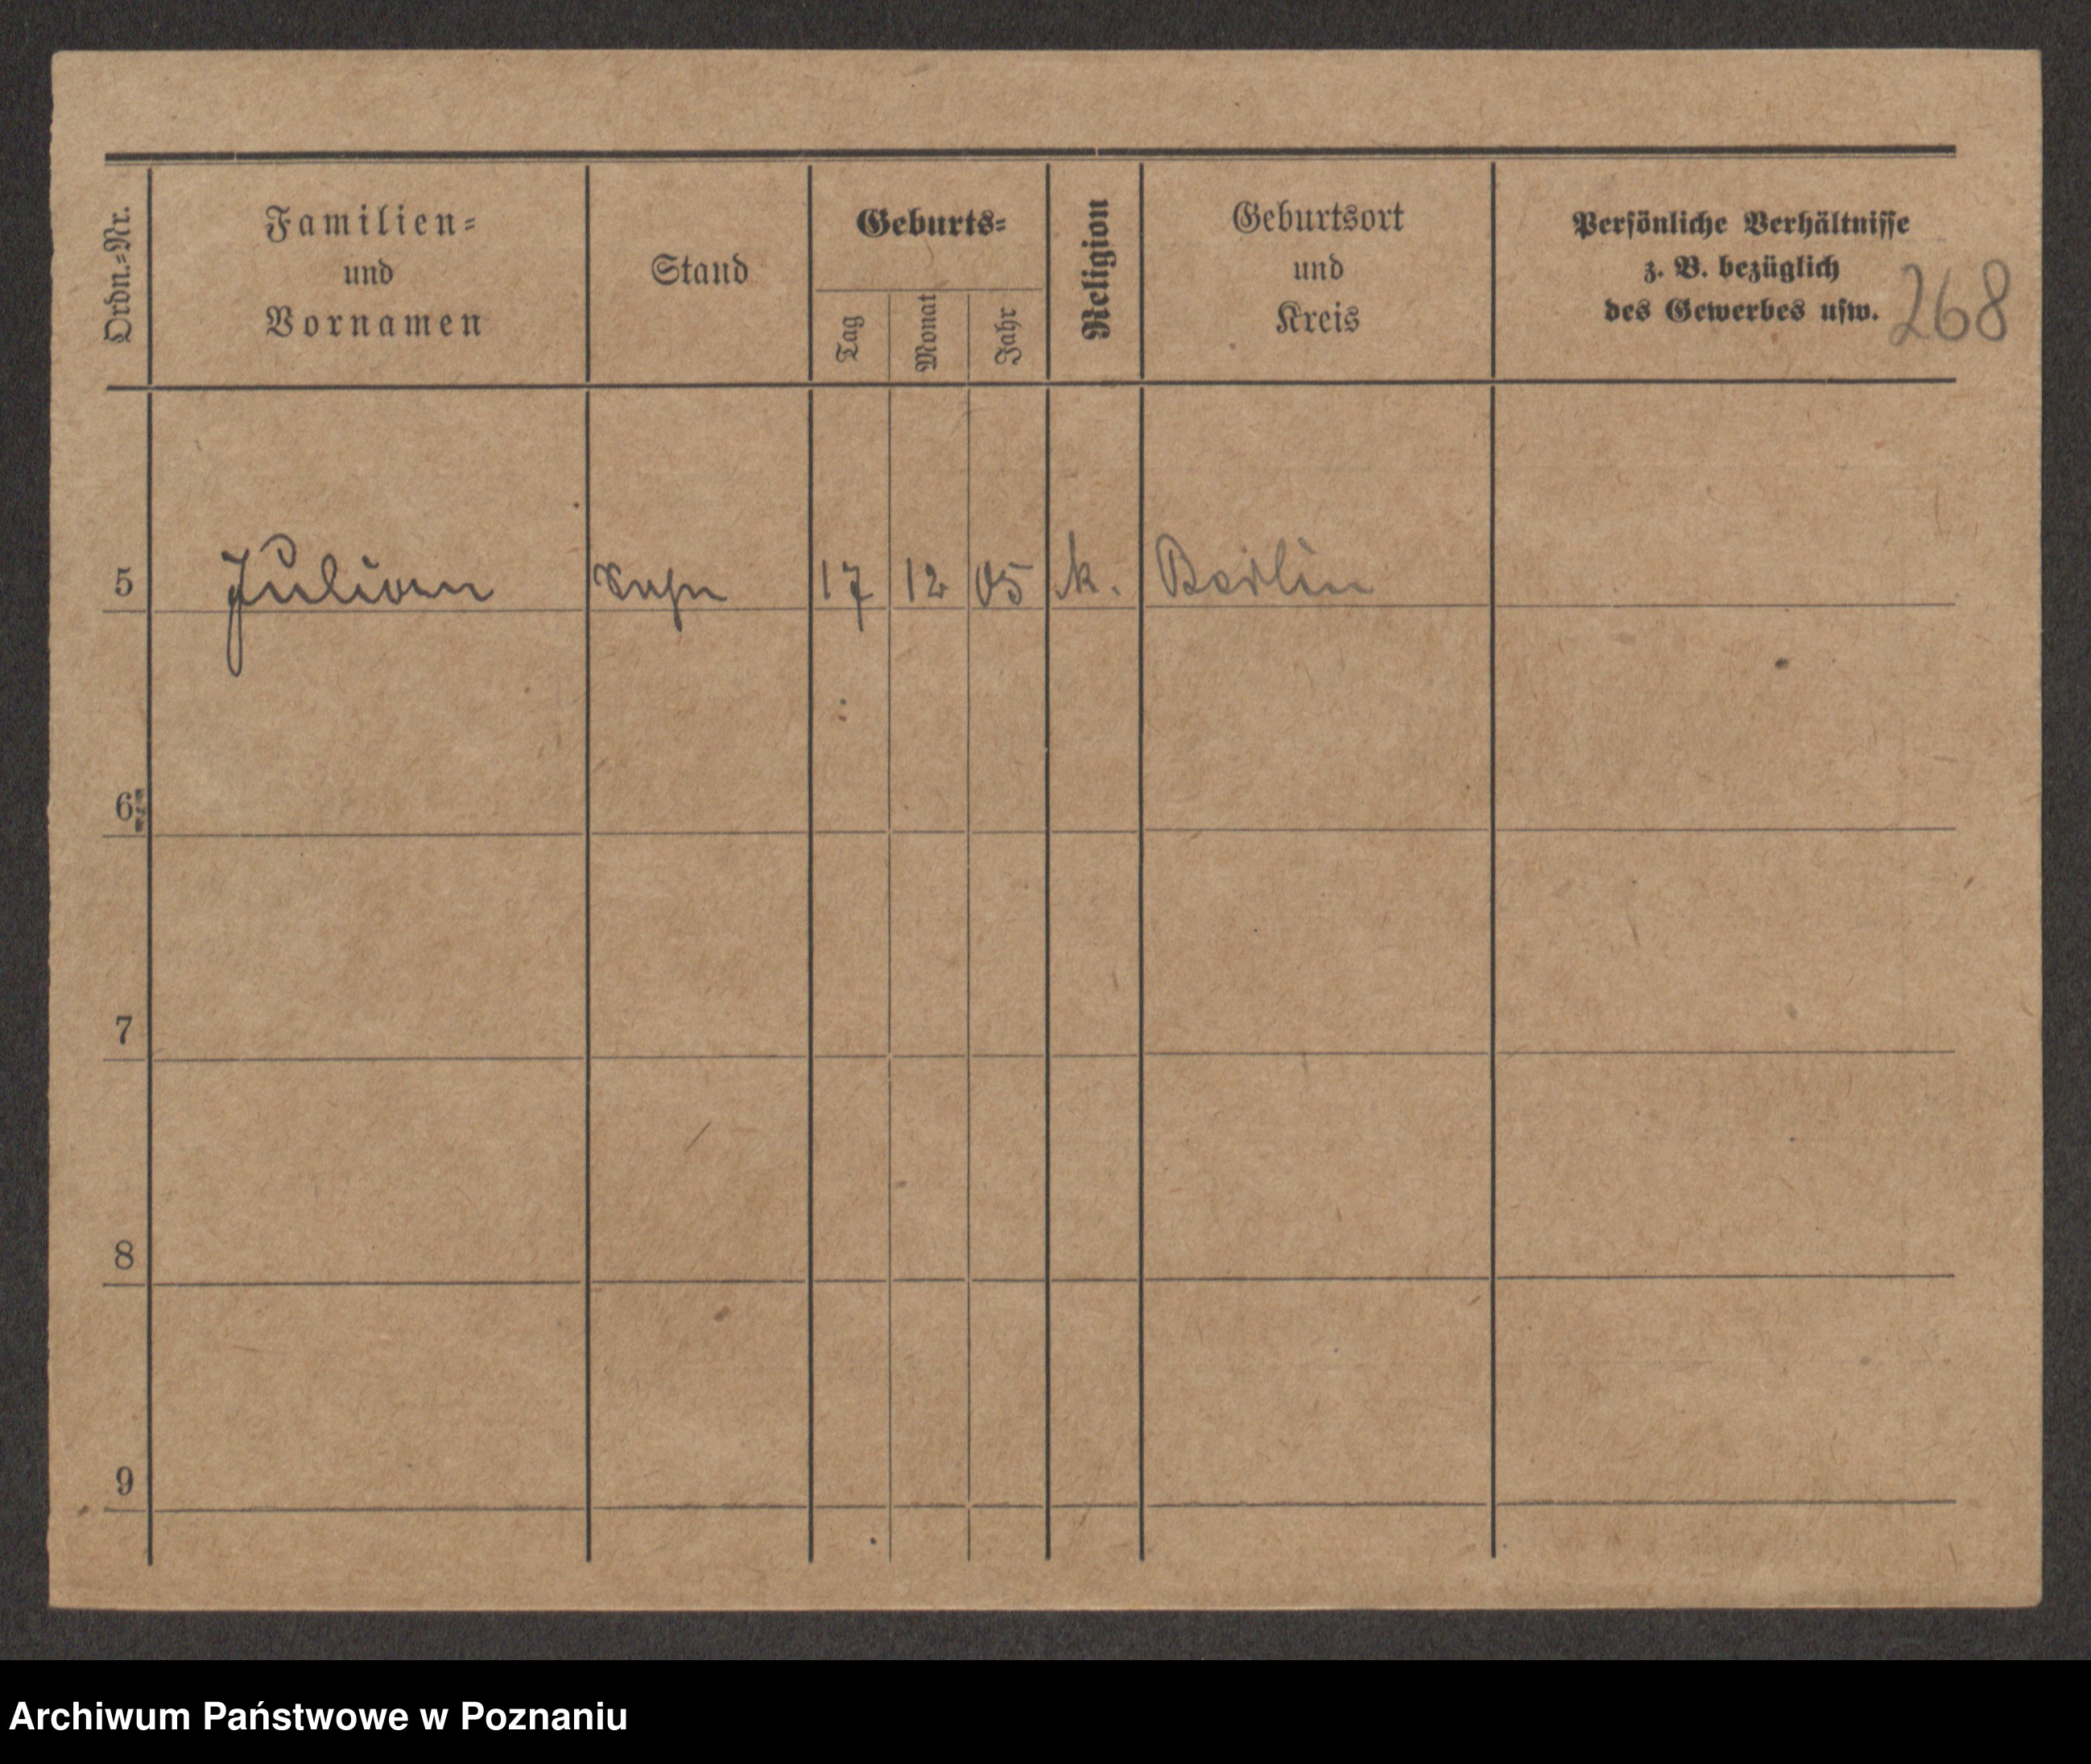 Ordn.-Nr.
Familien-
und
Vornamen
Stand
Geburts-
Tag
Monat
Jahr
Religion
Geburtsort
und
Kreis
Persönliche Verhältnisse
z. B. bezüglich
des Gewerbes usw.
268
5 Julian 17 12 05 k. Berlin
6
7
8
9
Archiwum Państwowe w Poznaniu